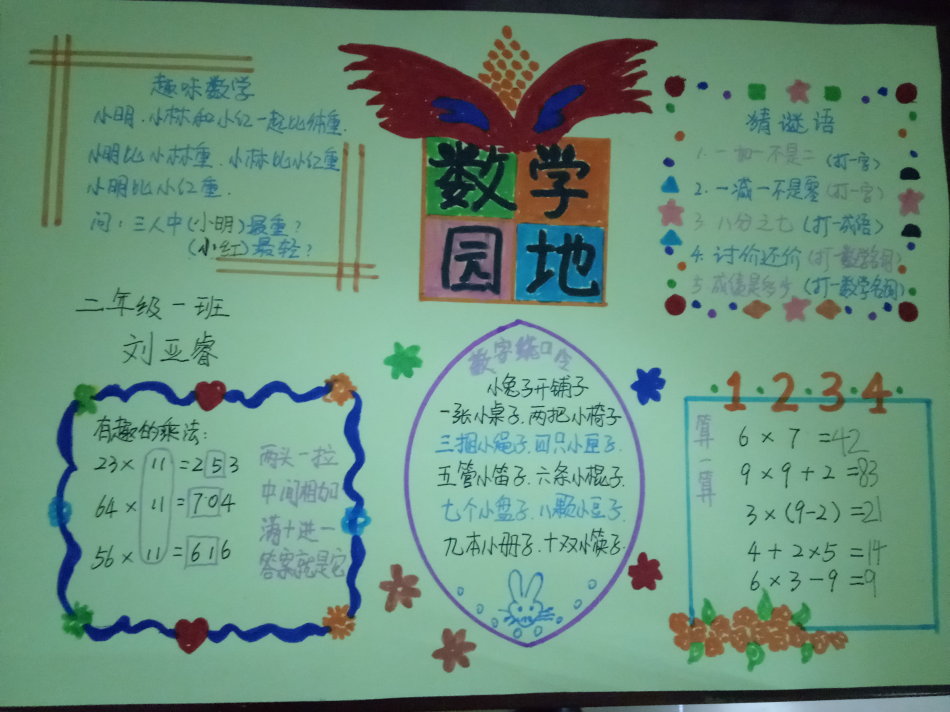 趣味数学
小明、小林和小红一起比体重.
小明比小林重.小林比小红重
小明比小红重.
问:三人中(小明)最重?
(小红)最轻?
数学
园地
猜谜语
1.一加一不是二(打一字)
2.一减一不是零(打一字)
3.八分之七(打一成语)
4.讨价还价(打一数学名词)
5.成绩是多少(打一数学名词)
二年级一班
刘亚睿
有趣的乘法:
23×11=253
64×11=704
56×11=616
两头一拉
中间相加
满十进一
答案就是它
数字绕口令
小兔子开铺子
一张小桌子.两把小椅子
三捆小绳子.四只小豆子.
五管小笛子.六条小棍子.
七个小盘子.八颗小豆子.
九本小册子.十双小筷子.
1·2·3·4
算一算
6×7=42
9×9+2=83
3×(9-2)=21
4+2×5=14
6×3-9=9